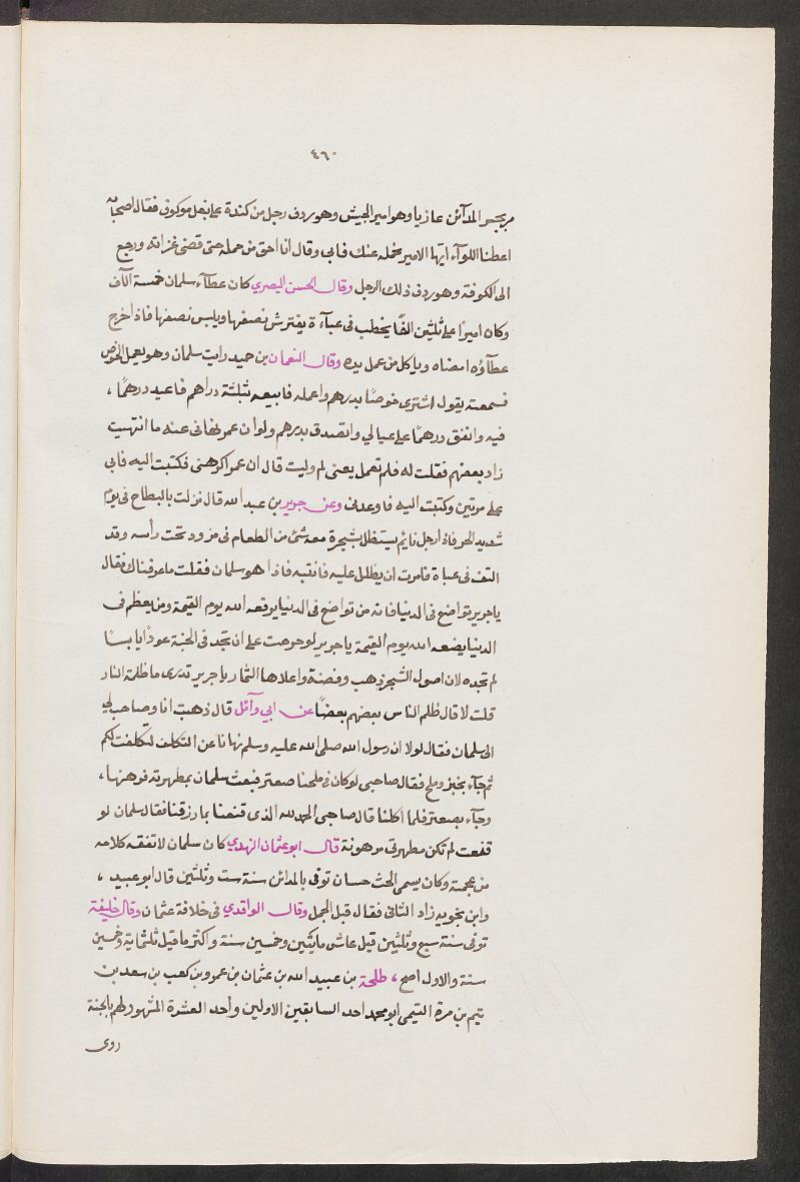 ٤٦٠
مر بجسر المدآئن غازيا وهو امير الجيش وهو ردف رجل من كندة على بغل موكوف فقال اصحابه
اعطنا اللوآء ايها الامير نحمله عنك فابى وقال انا احق من حمله حتى قضى غزاته ورجع
الى الكوفة وهو ردف ذلك الرجل وقال الحسن البصري كان عطآء سلمان خمسة الآف
وكان اميرًا على ثلثين الفًا يخطب فى عبآءة يفترش نصفها ويلبس نصفها فاذا خرج
عطآؤه امضاه وياكل من عمل يده وقال النعمان بن حميد رايت سلمان وهو يعمل الخوص
فسمعته يقول اشترى خوصًا بدرهم واعمله فابيعه بثلثة دراهم فاعيد درهمًا ،
فيه وانفق درهمًا على عيالي واتصدق بدرهم ولو ان عمر نهانى عنه ما انتهيت
زاد بعضهم فقلت له فلم تعمل يعنى لم وليت قال ان عمر اكرهنى فكتبت اليه فابى
على مرتين وكتبت اليه فاوعدنى وعن جرير بن عبد الله قال نزلت بالبطاح فى يوم
شديد الحر فاذا رجل نايم يستظل بشجرة معه شئ من الطعام فى مزود تحت رأسه وقد
التف فى عباة فامرت ان يظلل عليه فانتبه فاذا هو سلمان فقلت ما عرفناك فقال
ياجرير تواضع فى الدنيا فانه من تواضع فى الدنيا يرفعه الله يوم القيمة ومن يعظم فى
الدنيا يضعه الله يوم القيمة ياجرير لو حرصت على ان تجد فى الجنة عودًا يابسًا
لم تجده لان اصول الشجر ذهب وفضة واعلاها الثمار ياجرير تدرى ما ظلمة النار
قلت لا قال ظلم الناس بعضهم بعضًا عن ابي وآئل قال ذهبت انا وصاحب لي
الى سلمان فقال لولا ان رسول الله صلى الله عليه وسلم نهانا عن التكلف لتكلفت لكم
ثم جآء بخبز وملح فقال صاحبى لو كان فى ملحنا صعتر فبعث سلمان بمطهرته فرهنها ،
وجآء بصعتر فلما اكلنا قال صاحبى الحمد لله الذى قنعنا بما رزقنا فقال سلمان لو
قنعت لم تكن مطهرتى مرهونة قال ابو عثمان النهدي كان سلمان لا تفقه كلامه
من عجمة وكان يسمى الحث حسان توفى بالمدائن سنة ست وثلثين قال ابو عبيد ،
وابن زنجويه زاد الثانى فقال قبل الجمل وقال الواقدي فى خلافة عثمان وقال خليفة
توفى سنة سبع وثلثين قيل عاش مايتين وخمسين سنة واكثر ما قيل ثلثماية وخمسين
سنة والاول اصح ، طلحة بن عبيد الله بن عثمان بن عمرو بن كعب بن سعد بن
تيم بن مرة التيمى ابو محمد احد السابقين الاولين وأحد العشرة المشهود لهم بالجنة
روى